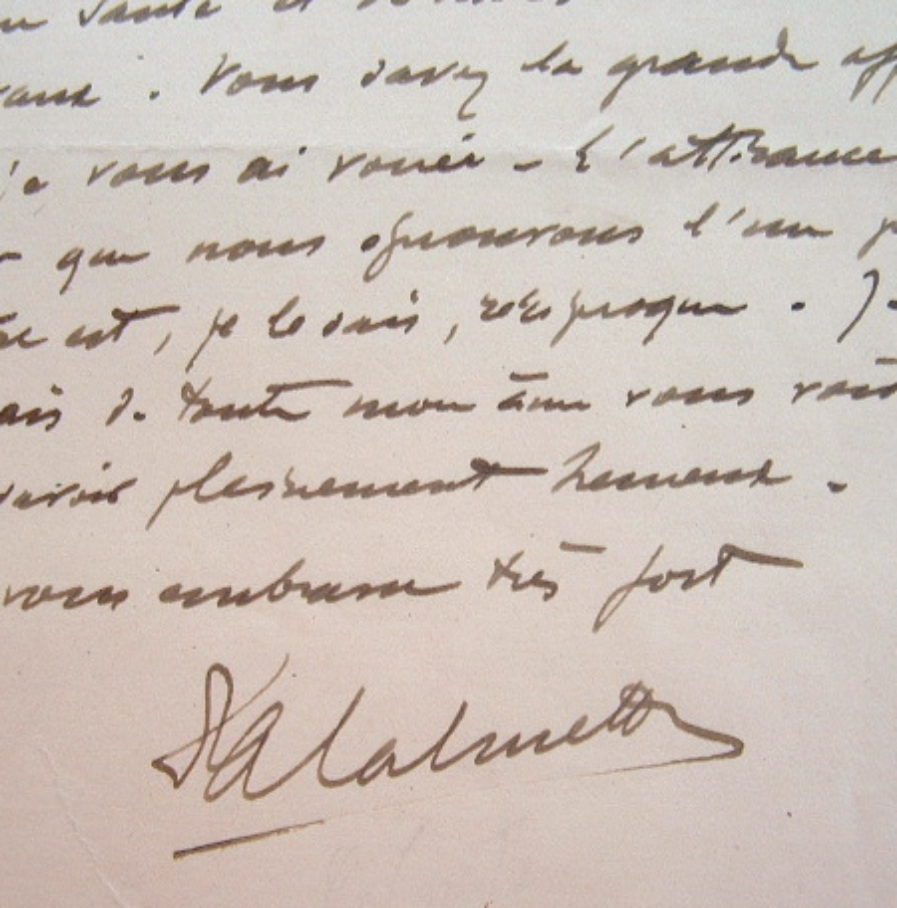 santé et
. Vous savez la grande aff
je vous ai vouée - L'attirance
que nous éprouvons l'un p
est, je le sais, réciproque. J
ais de toute mon âme vous voir
savoir pleinement heureux.
vous embrasse très fort
A Calmette